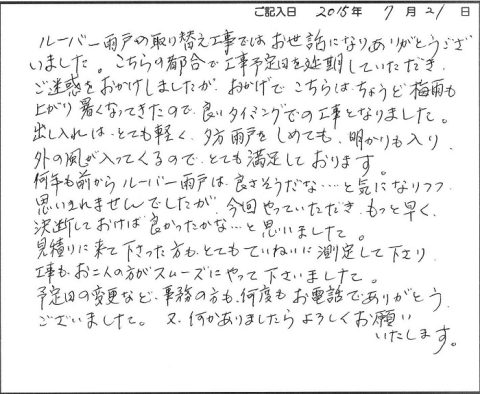 ご記入日 2015年 7月 21日
ルーバー雨戸の取り替え工事ではお世話になりありがとうござ
いました。こちらの都合で工事予定日を延期していただき、
ご迷惑をおかけしましたが、おかげでこちらはちょうど梅雨も
上がり暑くなってきたので、良いタイミングでの工事となりました。
出し入れは、とても軽く、夕方雨戸をしめても、明かりも入り、
外の風が入ってくるので、とても満足しております。
何年も前からルーバー雨戸は、良さそうだな…と気になりつつ、
思いきれませんでしたが、今回やっていただき、もっと早く、
決断しておけば良かったかな…と思いました。
見積りに来て下さった方も、とてもていねいに測定して下さり、
工事も、お二人の方がスムーズにやって下さいました。
予定日の変更など、事務の方も、何度もお電話でありがとう
ございました。又、何かありましたらよろしくお願い
いたします。